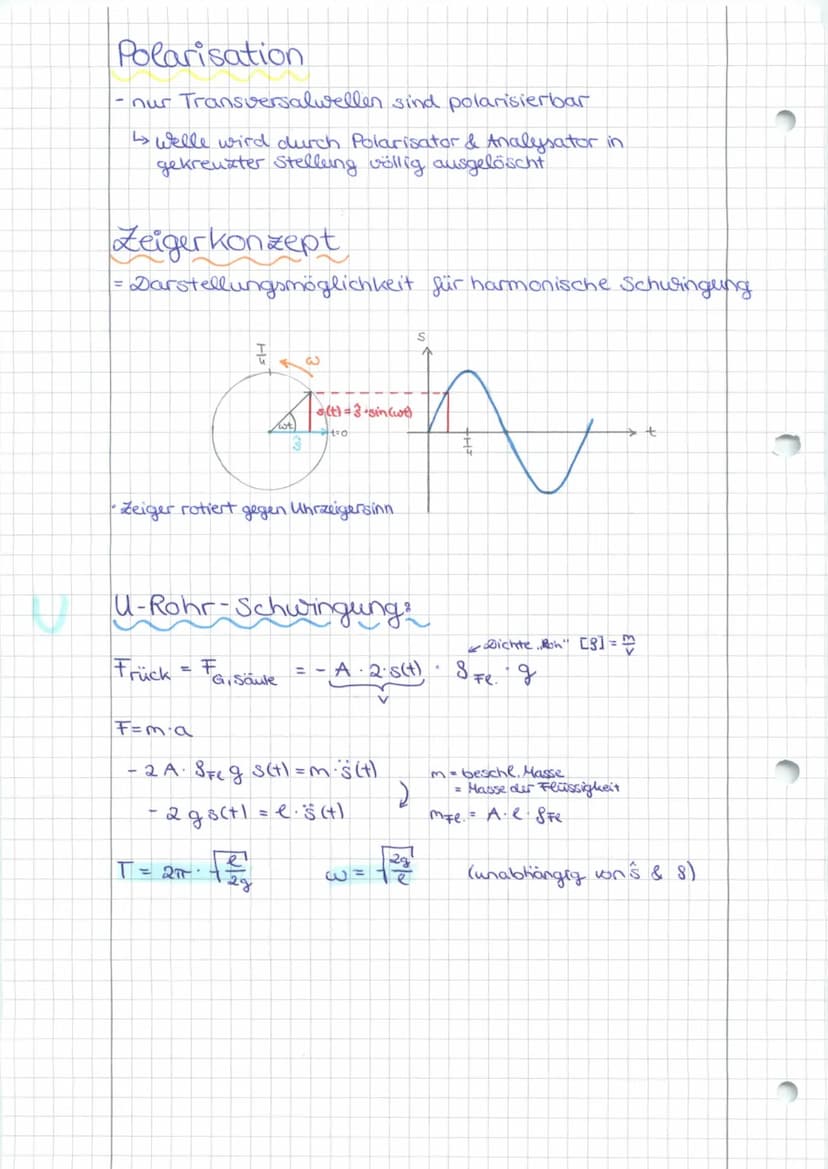 Polarisation
- nur Transversalwellen sind polarisierbar
↳ Welle wird durch Polarisator & Analysator in
gekreuzter Stellung völlig ausgelöscht
Zeigerkonzept
= Darstellungsmöglichkeit für harmonische Schwingung
T/4 ω s
s(t) = ŝ · sin(ωt)
ωt ŝ t=0 T/4 t
· Zeiger rotiert gegen Uhrzeigersinn
U-Rohr-Schwingung:
↙ Dichte "Roh" [ρ] = m/V
F_Rück = F_G,Säule = - A · 2 · s(t) · ρ_Fl. · g
V
F = m · a
- 2 A · ρ_Fl g s(t) = m · s̈(t) m = beschl. Masse
= Masse der Flüssigkeit
- 2 g s(t) = l · s̈(t) m_Fl. = A · l · ρ_Fl
T = 2π · √(l/2g) ω = √(2g/l) (unabhängig von ŝ & ρ)